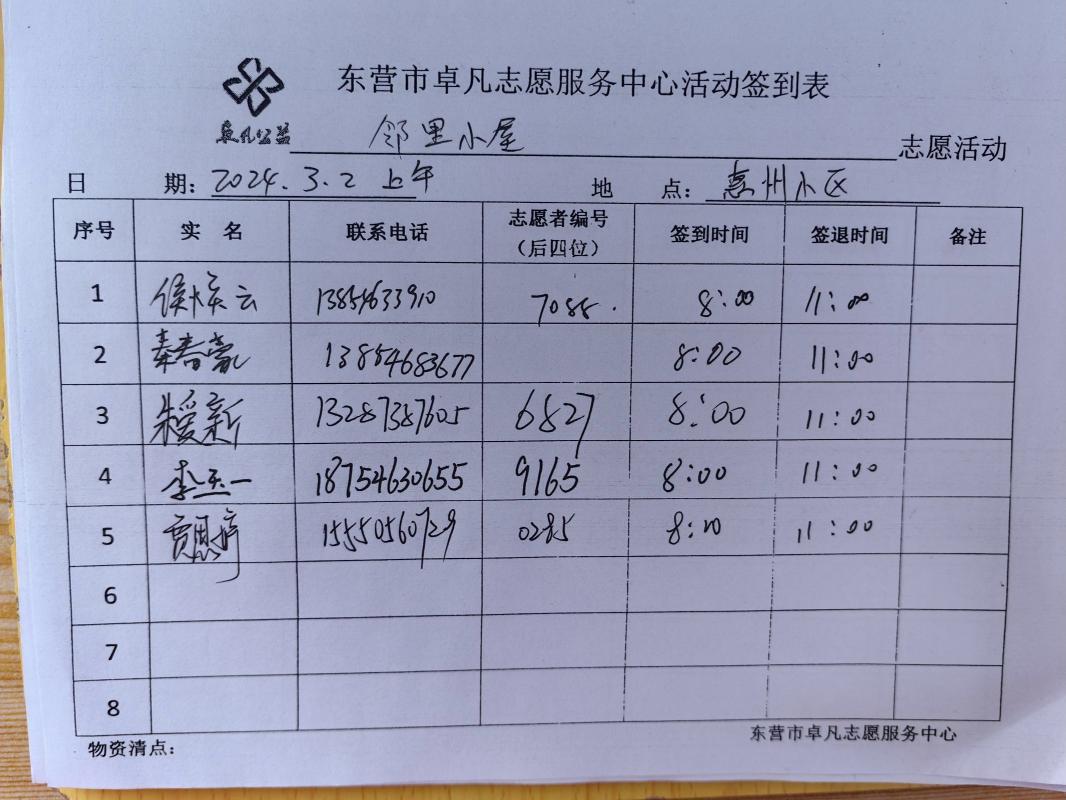 东营市卓凡志愿服务中心活动签到表
卓凡公益 邻里小屋 志愿活动
日 期: 2024.3.2 上午 地 点: 惠州小区
序号 实 名 联系电话 志愿者编号（后四位） 签到时间 签退时间 备注
1 侯 云 13854633910 7088. 8:00 11:00
2 秦春 13854683677 8:00 11:00
3 朱爱新 13287387605 6827 8:00 11:00
4 李玉一 18754630655 9165 8:00 11:00
5 贾恩婷 15550560729 0285 8:20 11:00
6
7
8
物资清点： 东营市卓凡志愿服务中心